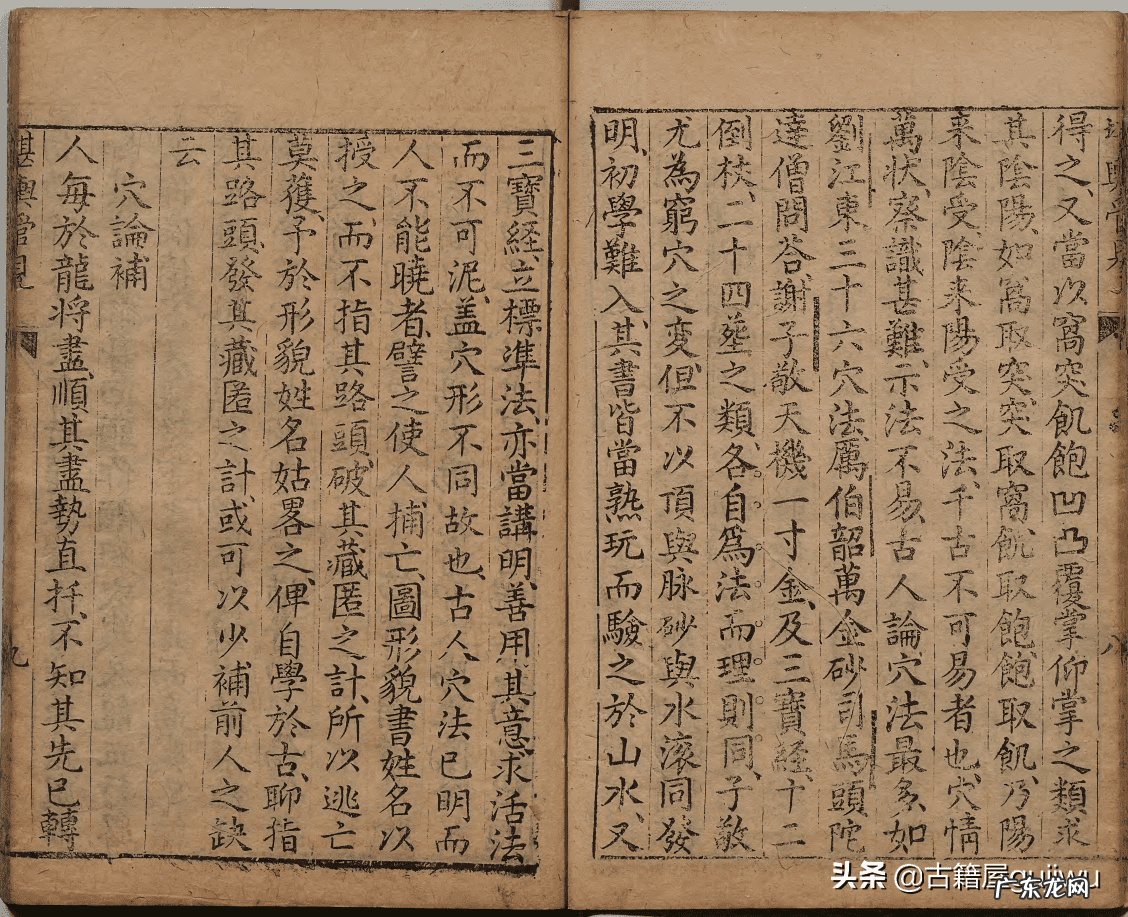 得之又當以窩突飢飽凹凸覆掌仰掌之類求
其陰陽如窩取突突取窩飢取飽飽取飢乃陽
来陰受陰来陽受之法千古不可易者也穴情
萬状察識甚難示法不易古人論穴法最多如
劉江東三十六穴法厲伯韶萬金砂司馬頭陀
達僧問答謝子敬天機一寸金及三寶經十二
倒杖二十四葬之類各自爲法而理則同子敬
尤為窮穴之變但不以頂與脉砂與水滚同發
明初學難入其書皆當熟玩而驗之於山水又
三寶經立標準法亦當講明善用其意求活法
而不可泥盖穴形不同故也古人穴法已明而
人不能曉者譬之使人捕亡圖形貌書姓名以
授之而不指其路頭破其藏匿之計所以逃亡
莫獲予於形貌姓名姑畧之俾自學於古聊指
其路頭發其藏匿之計或可以少補前人之缺
云
穴論補
人每於龍将盡順其盡勢直扦不知其先已轉
八
九
头条 @古籍屋gujiwu
广东龙网